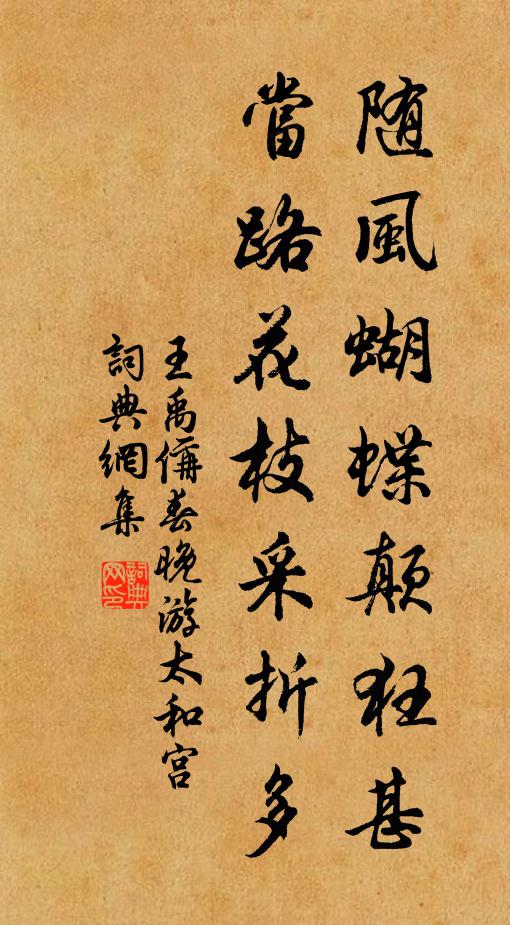 随風蝴蝶顛狂甚
當路花枝采折多
王禹偁春晚游太和宮
詞典網集
詞典網印